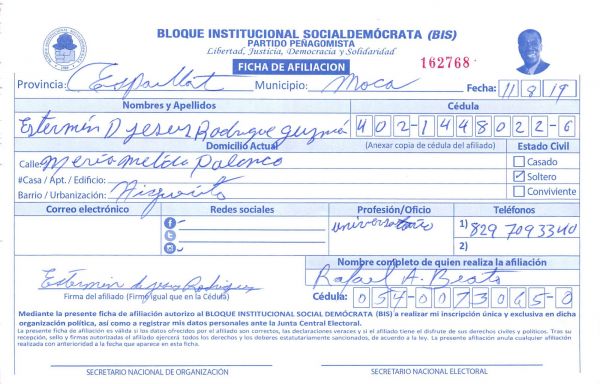 BLOQUE INSTITUCIONAL SOCIALDEMÓCRATA (BIS)
PARTIDO PEÑAGOMISTA
Libertad, Justicia, Democracia y Solidaridad
FICHA DE AFILIACION
162768
Provincia: Espaillat Municipio: Moca Fecha: 11/8/19
Nombres y Apellidos Cédula
Estermín D Jesus Rodrigue Guzmán 402-1448022-6
Domicilio Actual (Anexar copia de cédula del afiliado) Estado Civil
Calle: María Melida Polanco Casado
#Casa / Apt. / Edificio: Soltero
Barrio / Urbanización: Conviviente
Correo electrónico Redes sociales Profesión/Oficio Teléfonos
universitario 1) 829 709 3340
2)
Nombre completo de quien realiza la afiliación
Estermin de Jesus Rodriguez Rafael A. Beato
Firma del afiliado (Firma igual que en la Cédula) Cédula: 054-0073045-0
Mediante la presente ficha de afiliación autorizo al BLOQUE INSTITUCIONAL SOCIAL DEMÓCRATA (BIS) a realizar mi inscripción única y exclusiva en dicha
organización política, así como a registrar mis datos personales ante la Junta Central Electoral.
La presente ficha de afiliación es válida si los datos ofrecidos por el afiliado son correctos, las declaraciones veraces y si el afiliado tiene el disfrute de sus derechos civiles y políticos. Tras su
recepción, sello y firmas autorizadas el afiliado ejercerá todos los derechos y los deberes estatutariamente sancionados, de acuerdo a la ley. La presente afiliación anula cualquier afiliación
realizada con anterioridad a la fecha que aparece en esta ficha.
SECRETARIO NACIONAL DE ORGANIZACIÓN SECRETARIO NACIONAL ELECTORAL